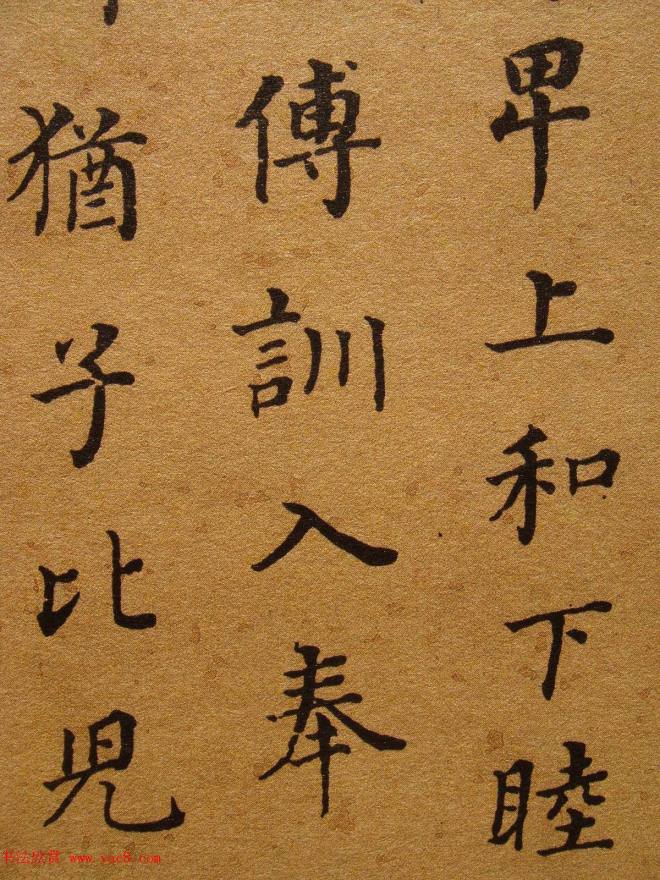 卑上和下睦
傅訓入奉
猶子比兒
书法欣赏 www.yac8.com